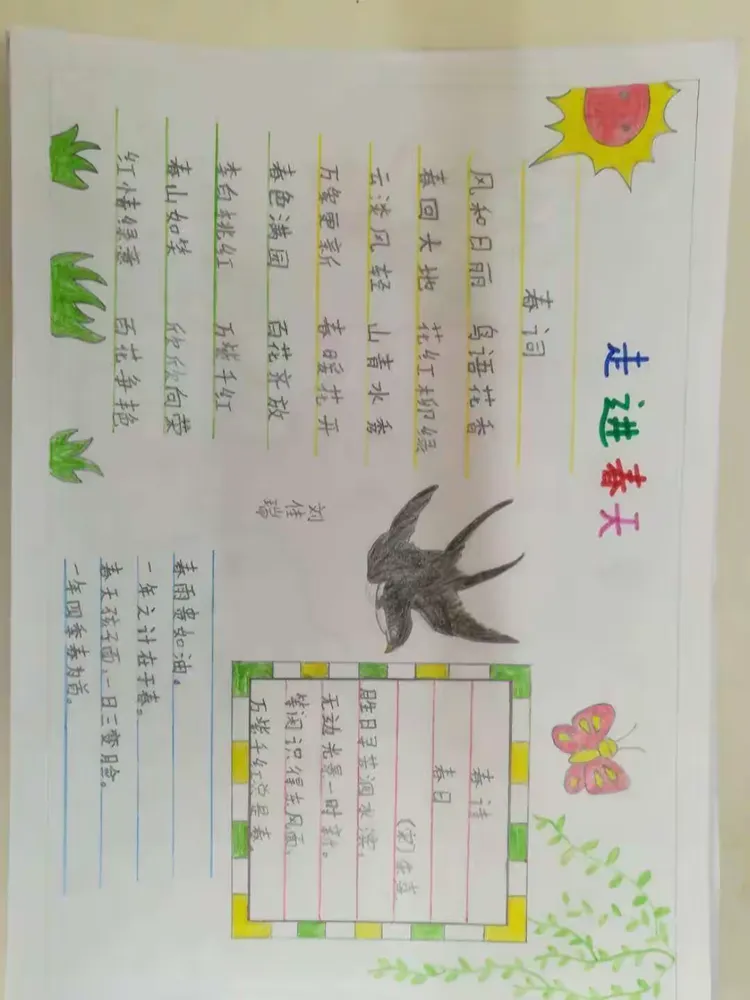 走进春天
春词
风和日丽 鸟语花香
春回大地 花红柳绿
云淡风轻 山青水秀
万象更新 春暖花开
春色满园 百花齐放
李白桃红 万紫千红
春山如笑 欣欣向荣
红情绿意 百花争艳
刘佳
春诗
春日
(宋)朱熹
胜日寻芳泗水滨,
无边光景一时新。
等闲识得东风面,
万紫千红总是春
春雨贵如油。
一年之计在于春。
春天孩子面,一日三变脸。
一年四季春为首。